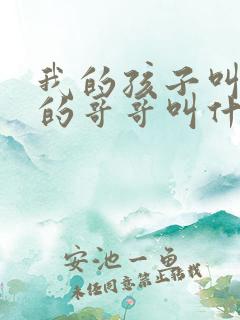 我的孩子叫
的哥哥叫什
安池一鱼
未经同意禁止搭载